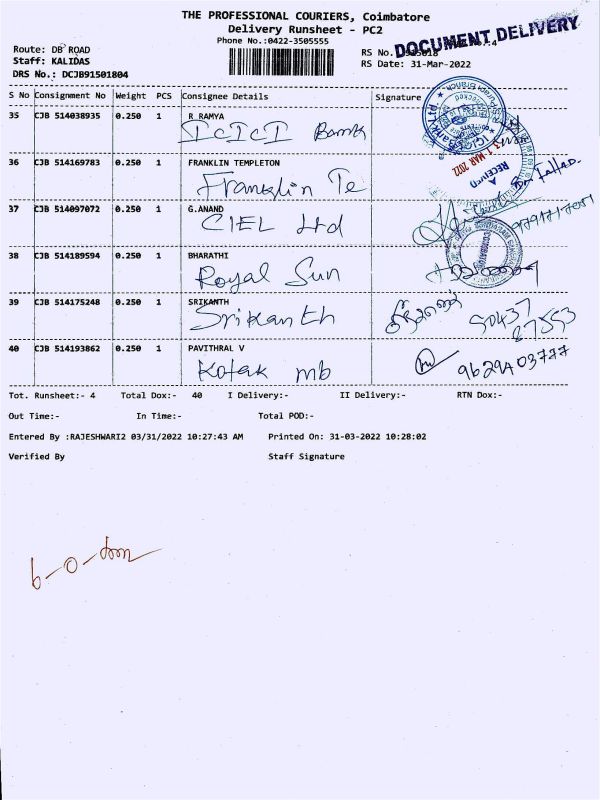 THE PROFESSIONAL COURIERS, Coimbatore
Delivery Runsheet - PC2
Phone No.:0422-3505555
DOCUMENT DELIVERY
Route: DB ROAD
Staff: KALIDAS
DRS No.: DCJB91501804
RS No.
RS Date: 31-Mar-2022
S No Consignment No Weight PCS Consignee Details Signature
35 CJB 514038935 0.250 1 R RAMYA
ICICI Bank
RECEIVED
31 MAR 2022
36 CJB 514169783 0.250 1 FRANKLIN TEMPLETON
Franklin Te
37 CJB 514097072 0.250 1 G.ANAND
CIEL Ltd
38 CJB 514189594 0.250 1 BHARATHI
Royal Sun
39 CJB 514175248 0.250 1 SRIKANTH
Srikanth
50437
87553
40 CJB 514193862 0.250 1 PAVITHRAL V
Kotak mb
9629403777
Tot. Runsheet:- 4 Total Dox:- 40 I Delivery:- II Delivery:- RTN Dox:-
Out Time:- In Time:- Total POD:-
Entered By :RAJESHWARI2 03/31/2022 10:27:43 AM Printed On: 31-03-2022 10:28:02
Verified By Staff Signature